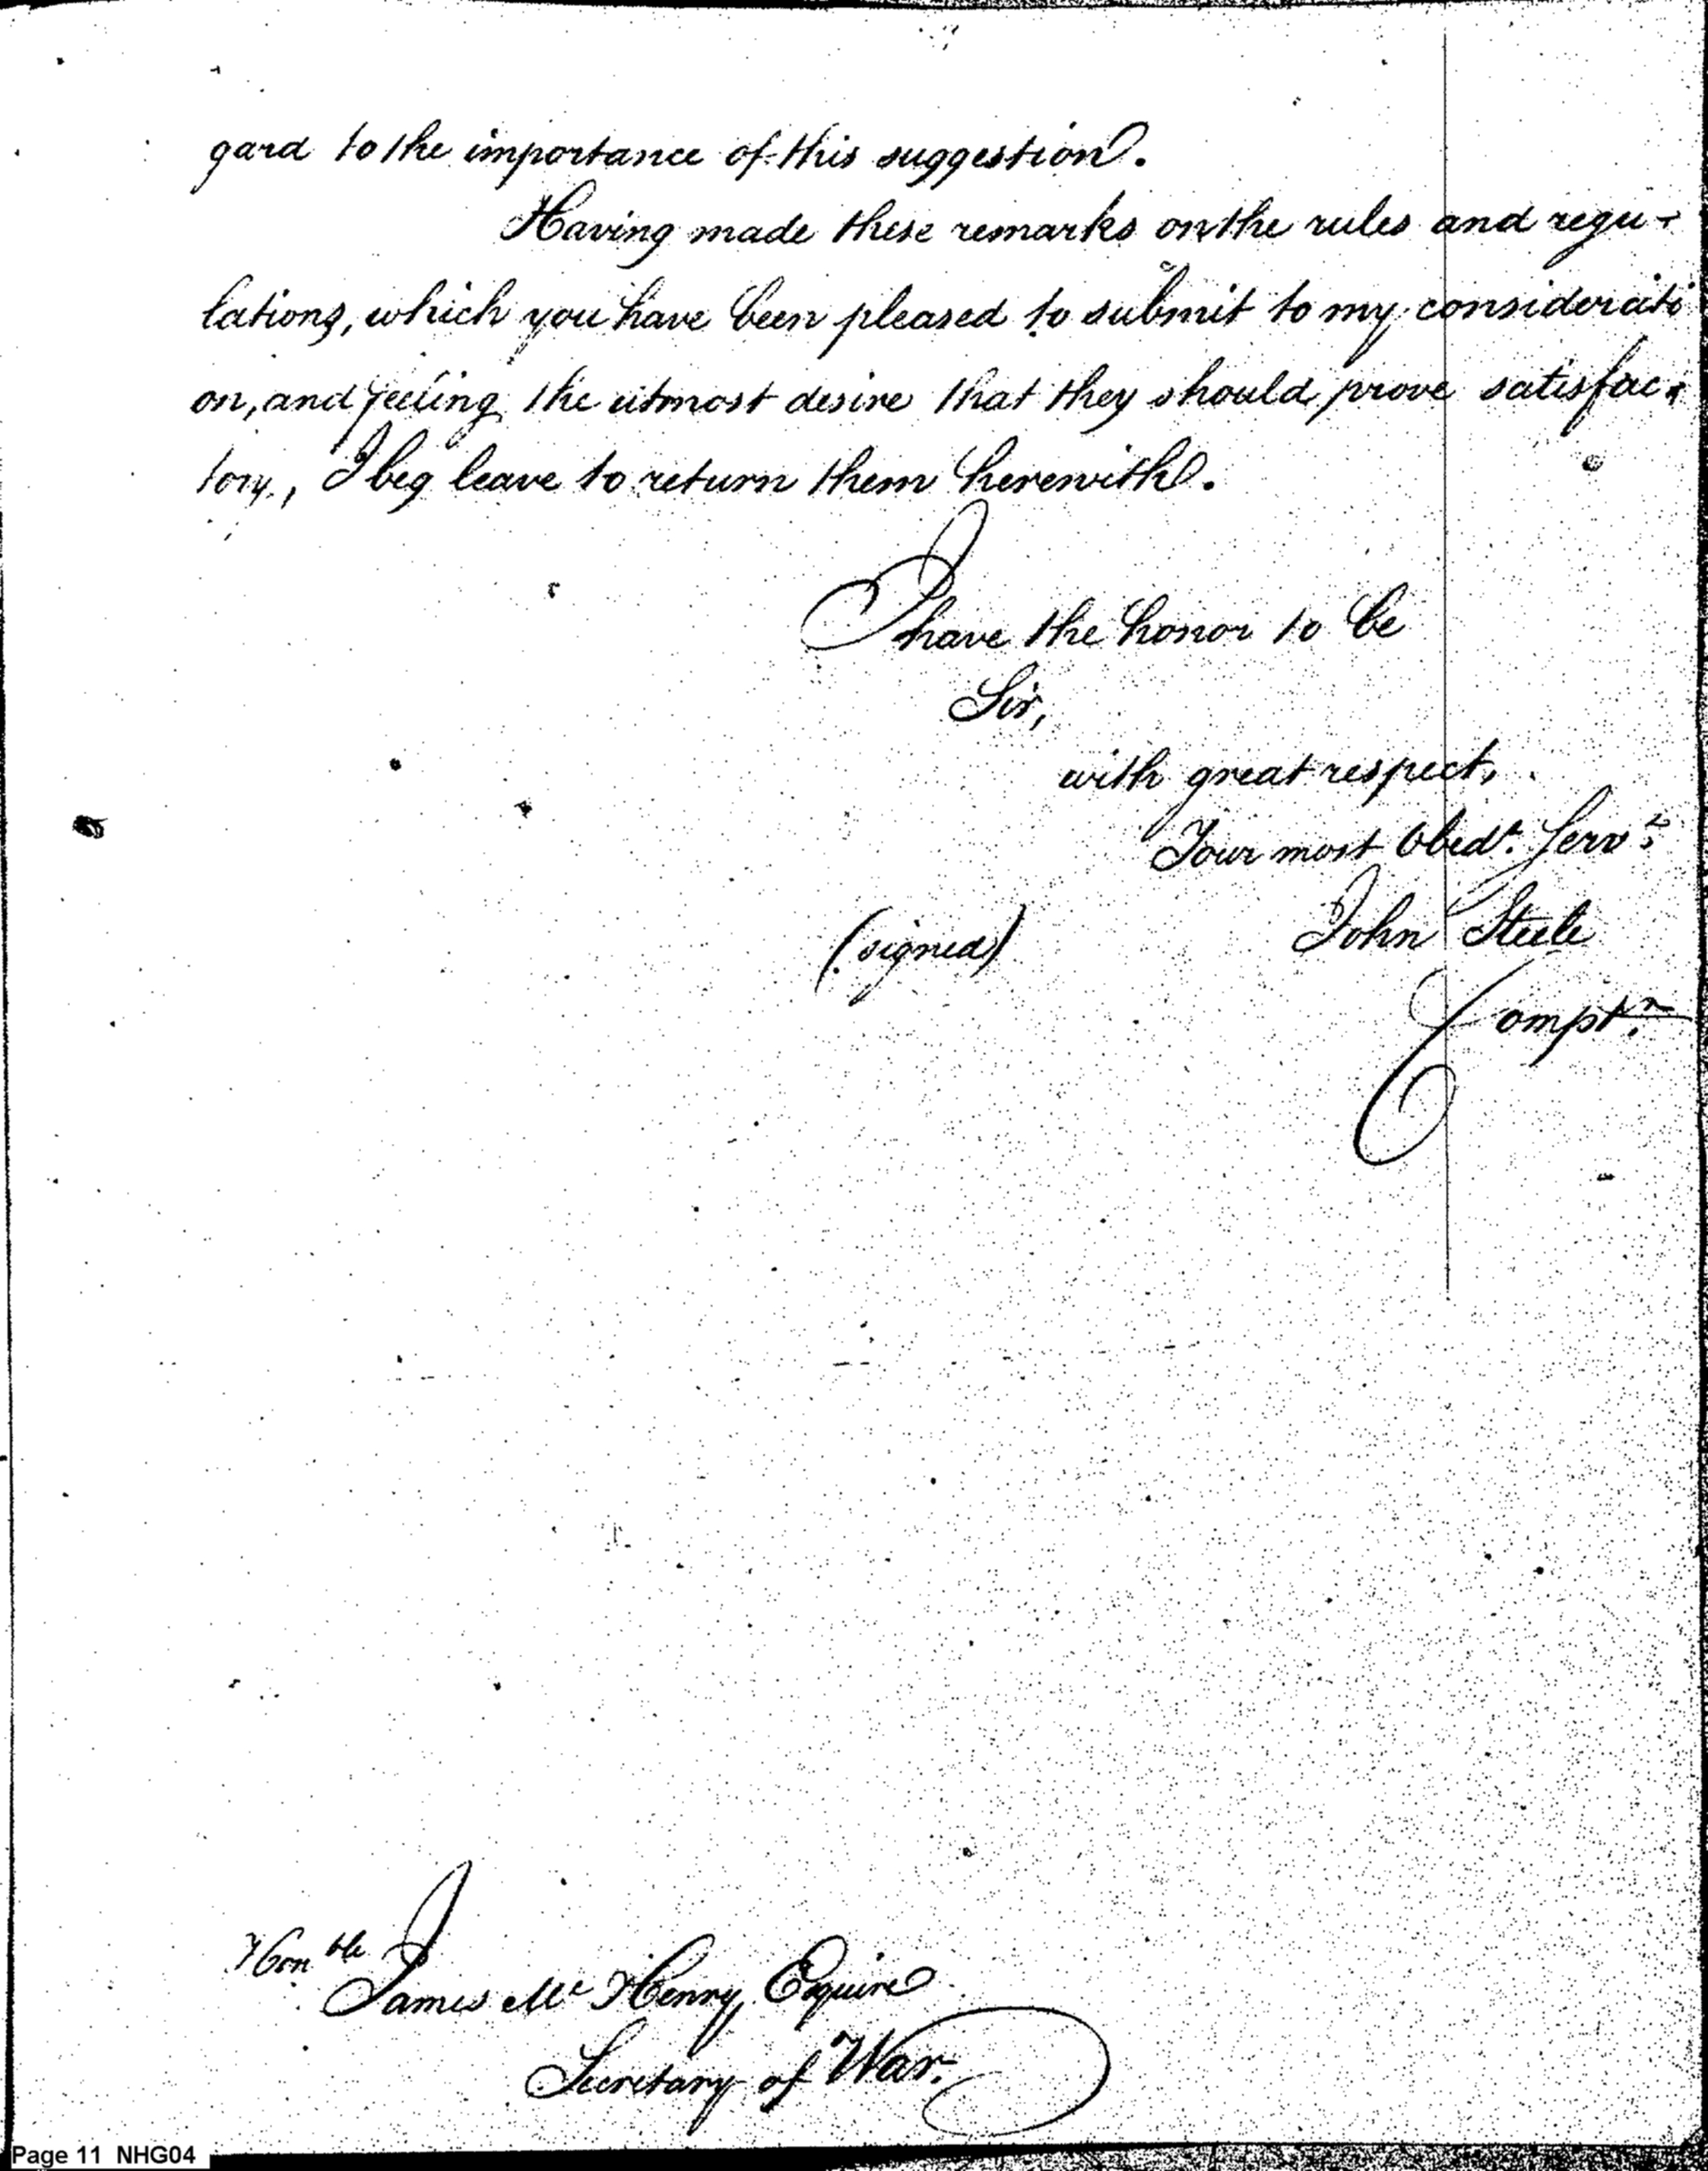 gard to the importance of this suggestion.
Having made these remarks on the rules and regu-
lations, which you have been pleased to submit to my considerati
on, and feeling the utmost desire that they should prove satisfac-
tory, I beg leave to return them herewith.
I have the honor to be
Sir,
with great respect,
Your most Obedt. Servt.
(signed) John Steele
Comptr.
Honble
James Mc Henry Esquire
Secretary of War.
Page 11 NHG04